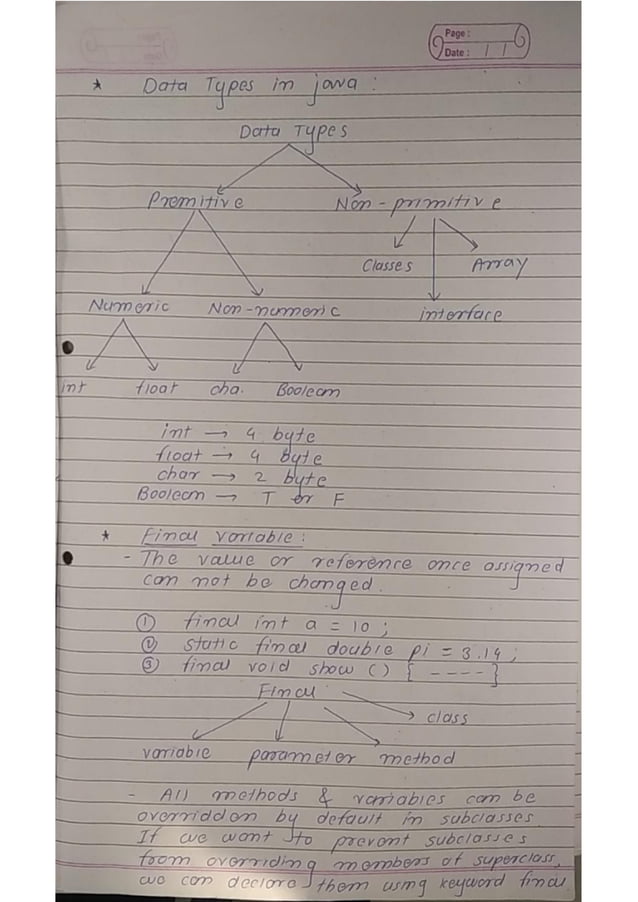 Page :
Date :
* Data Types in java :
Data Types
Premitive Non-primitive
Classes Array
Numeric Non-numeric interface
int float cha. Boolean
int → 4 byte
float → 4 byte
char → 2 byte
Boolean → T or F
* Final variable :
- The value or reference once assigned
can not be changed.
① final int a = 10 ;
② static final double pi = 3.14 ;
③ final void show () { ---- }
Final
class
variable parameter method
- All methods & variables can be
overridden by default in subclasses
If we want to prevent subclasses
from overriding members of superclass,
we can declare them using keyword final